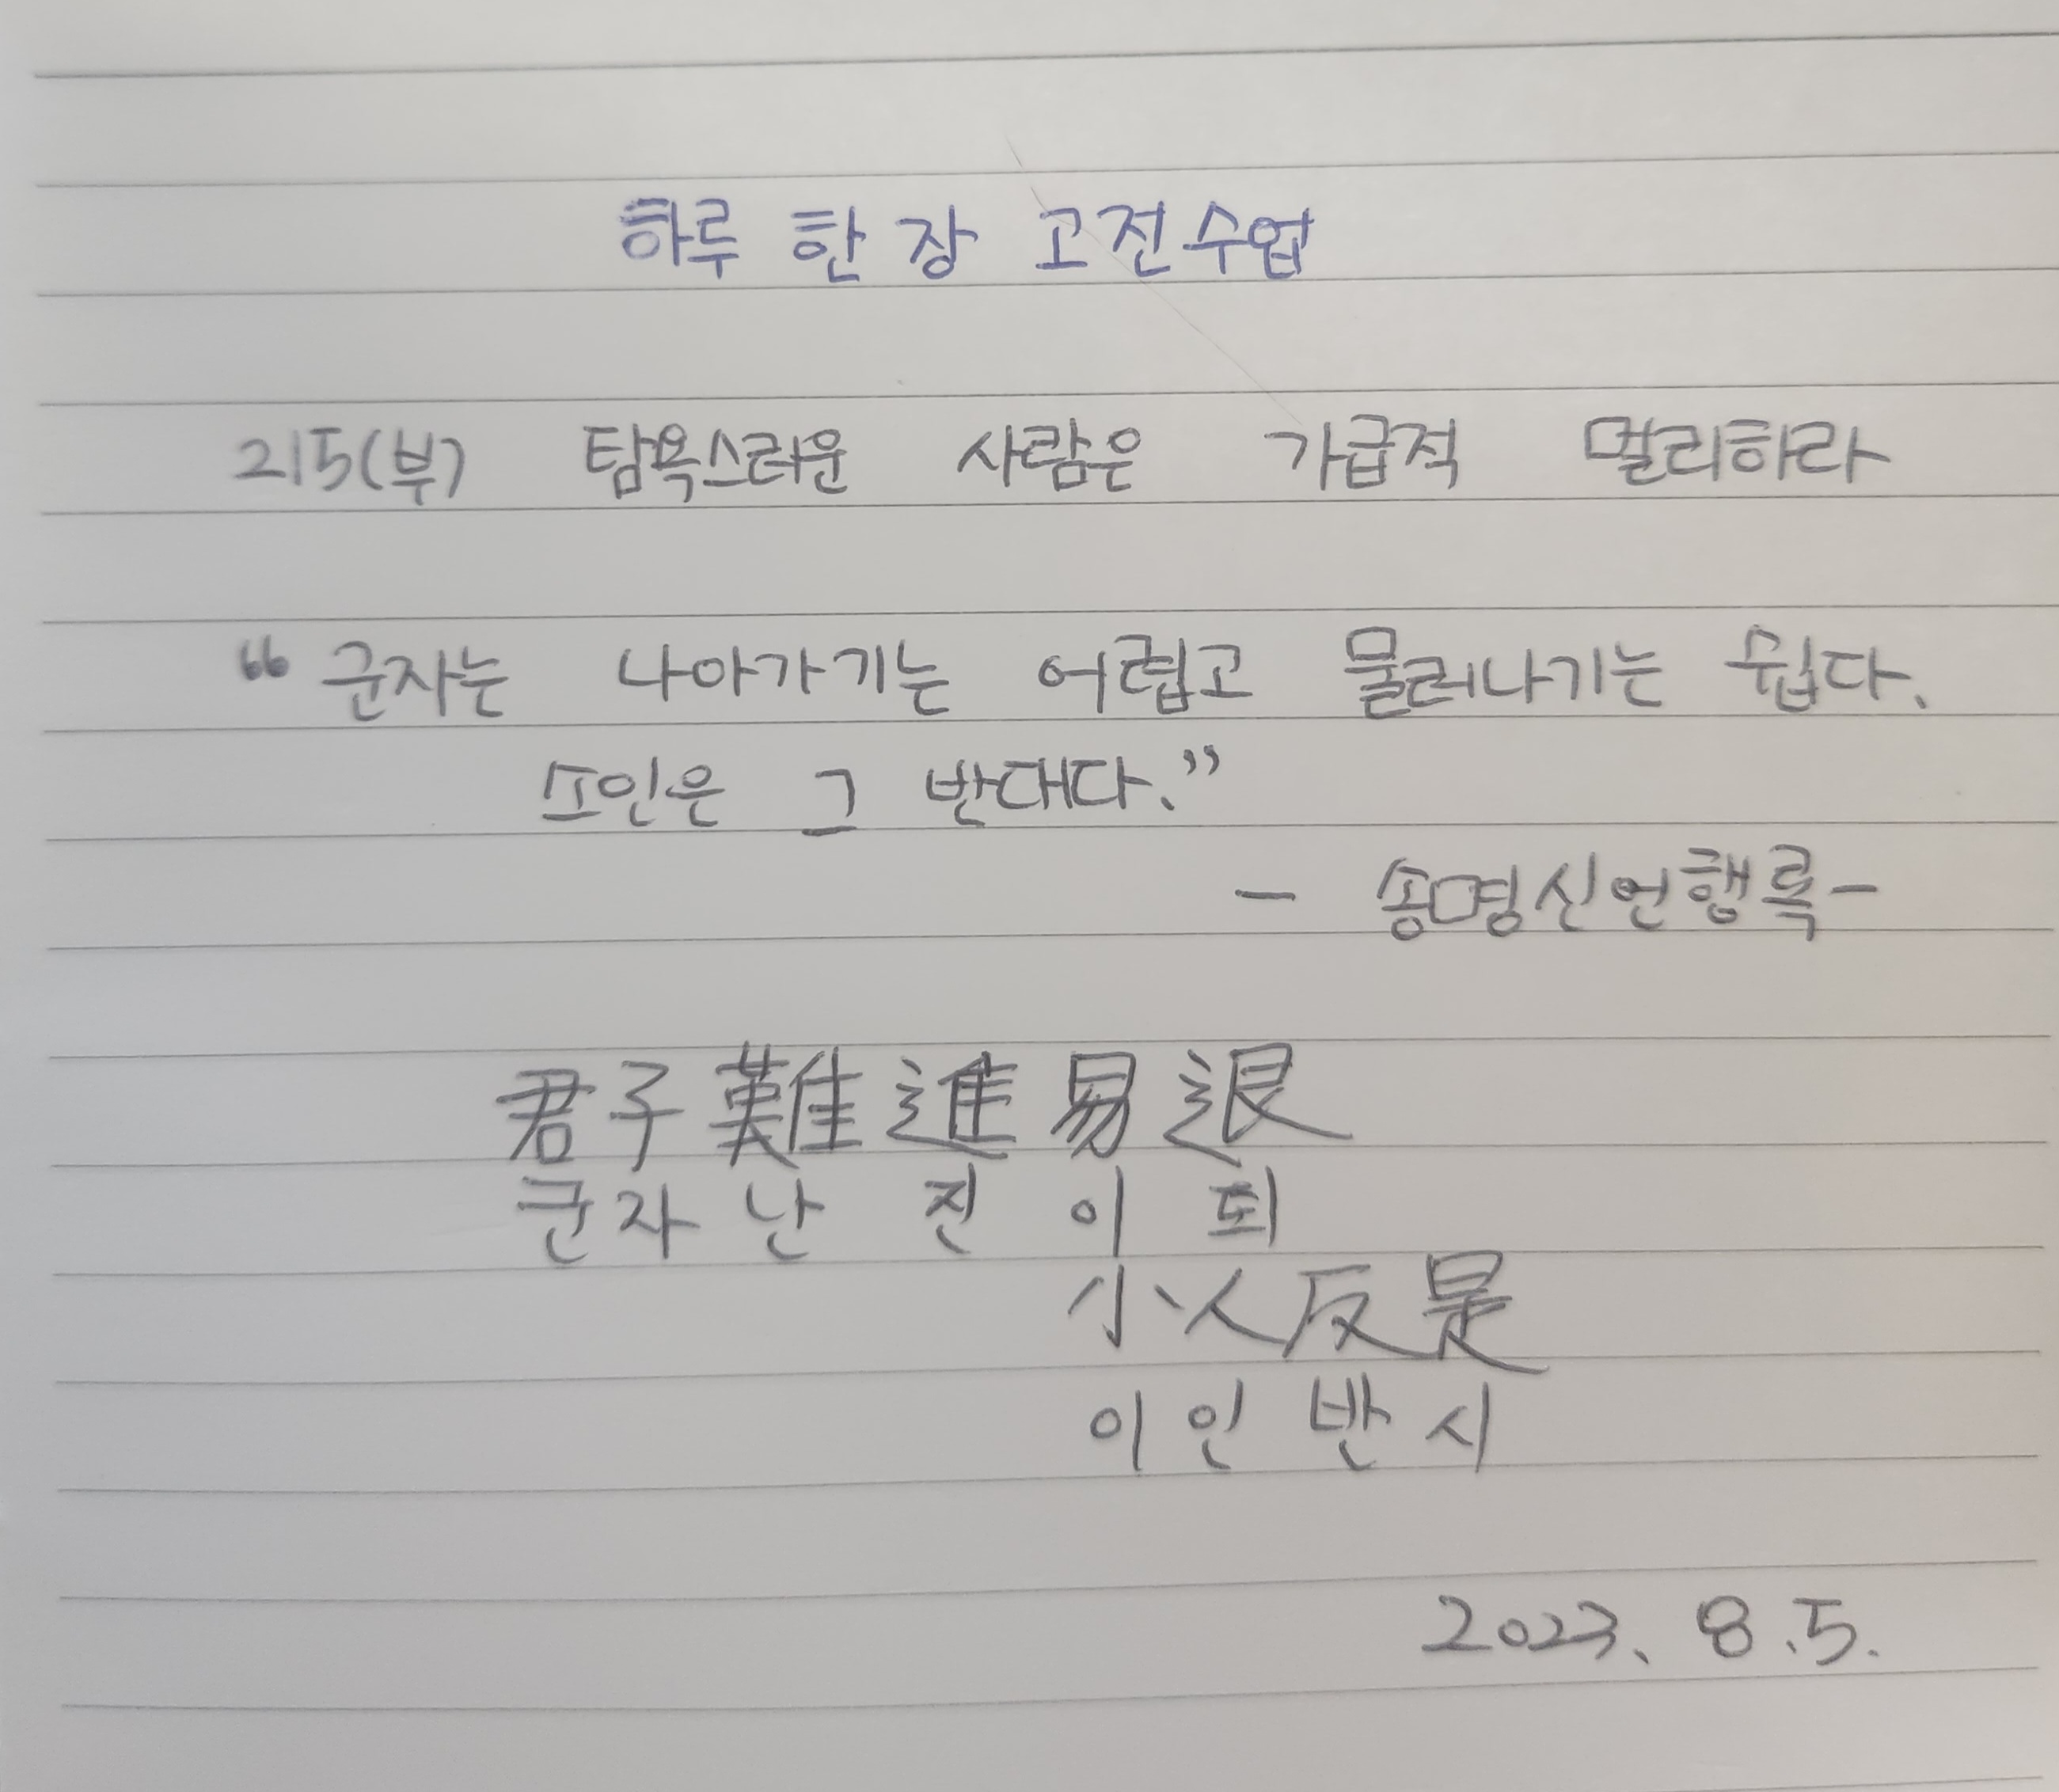 하루 한 장 고전수업
215(부) 탐욕스러운 사람은 가급적 멀리하라
“군자는 나아가기는 어렵고 물러나기는 쉽다.
소인은 그 반대다.”
- 송명신언행록-
君子難進易退
군자난진이퇴
小人反是
이인반시
2023. 8.5.